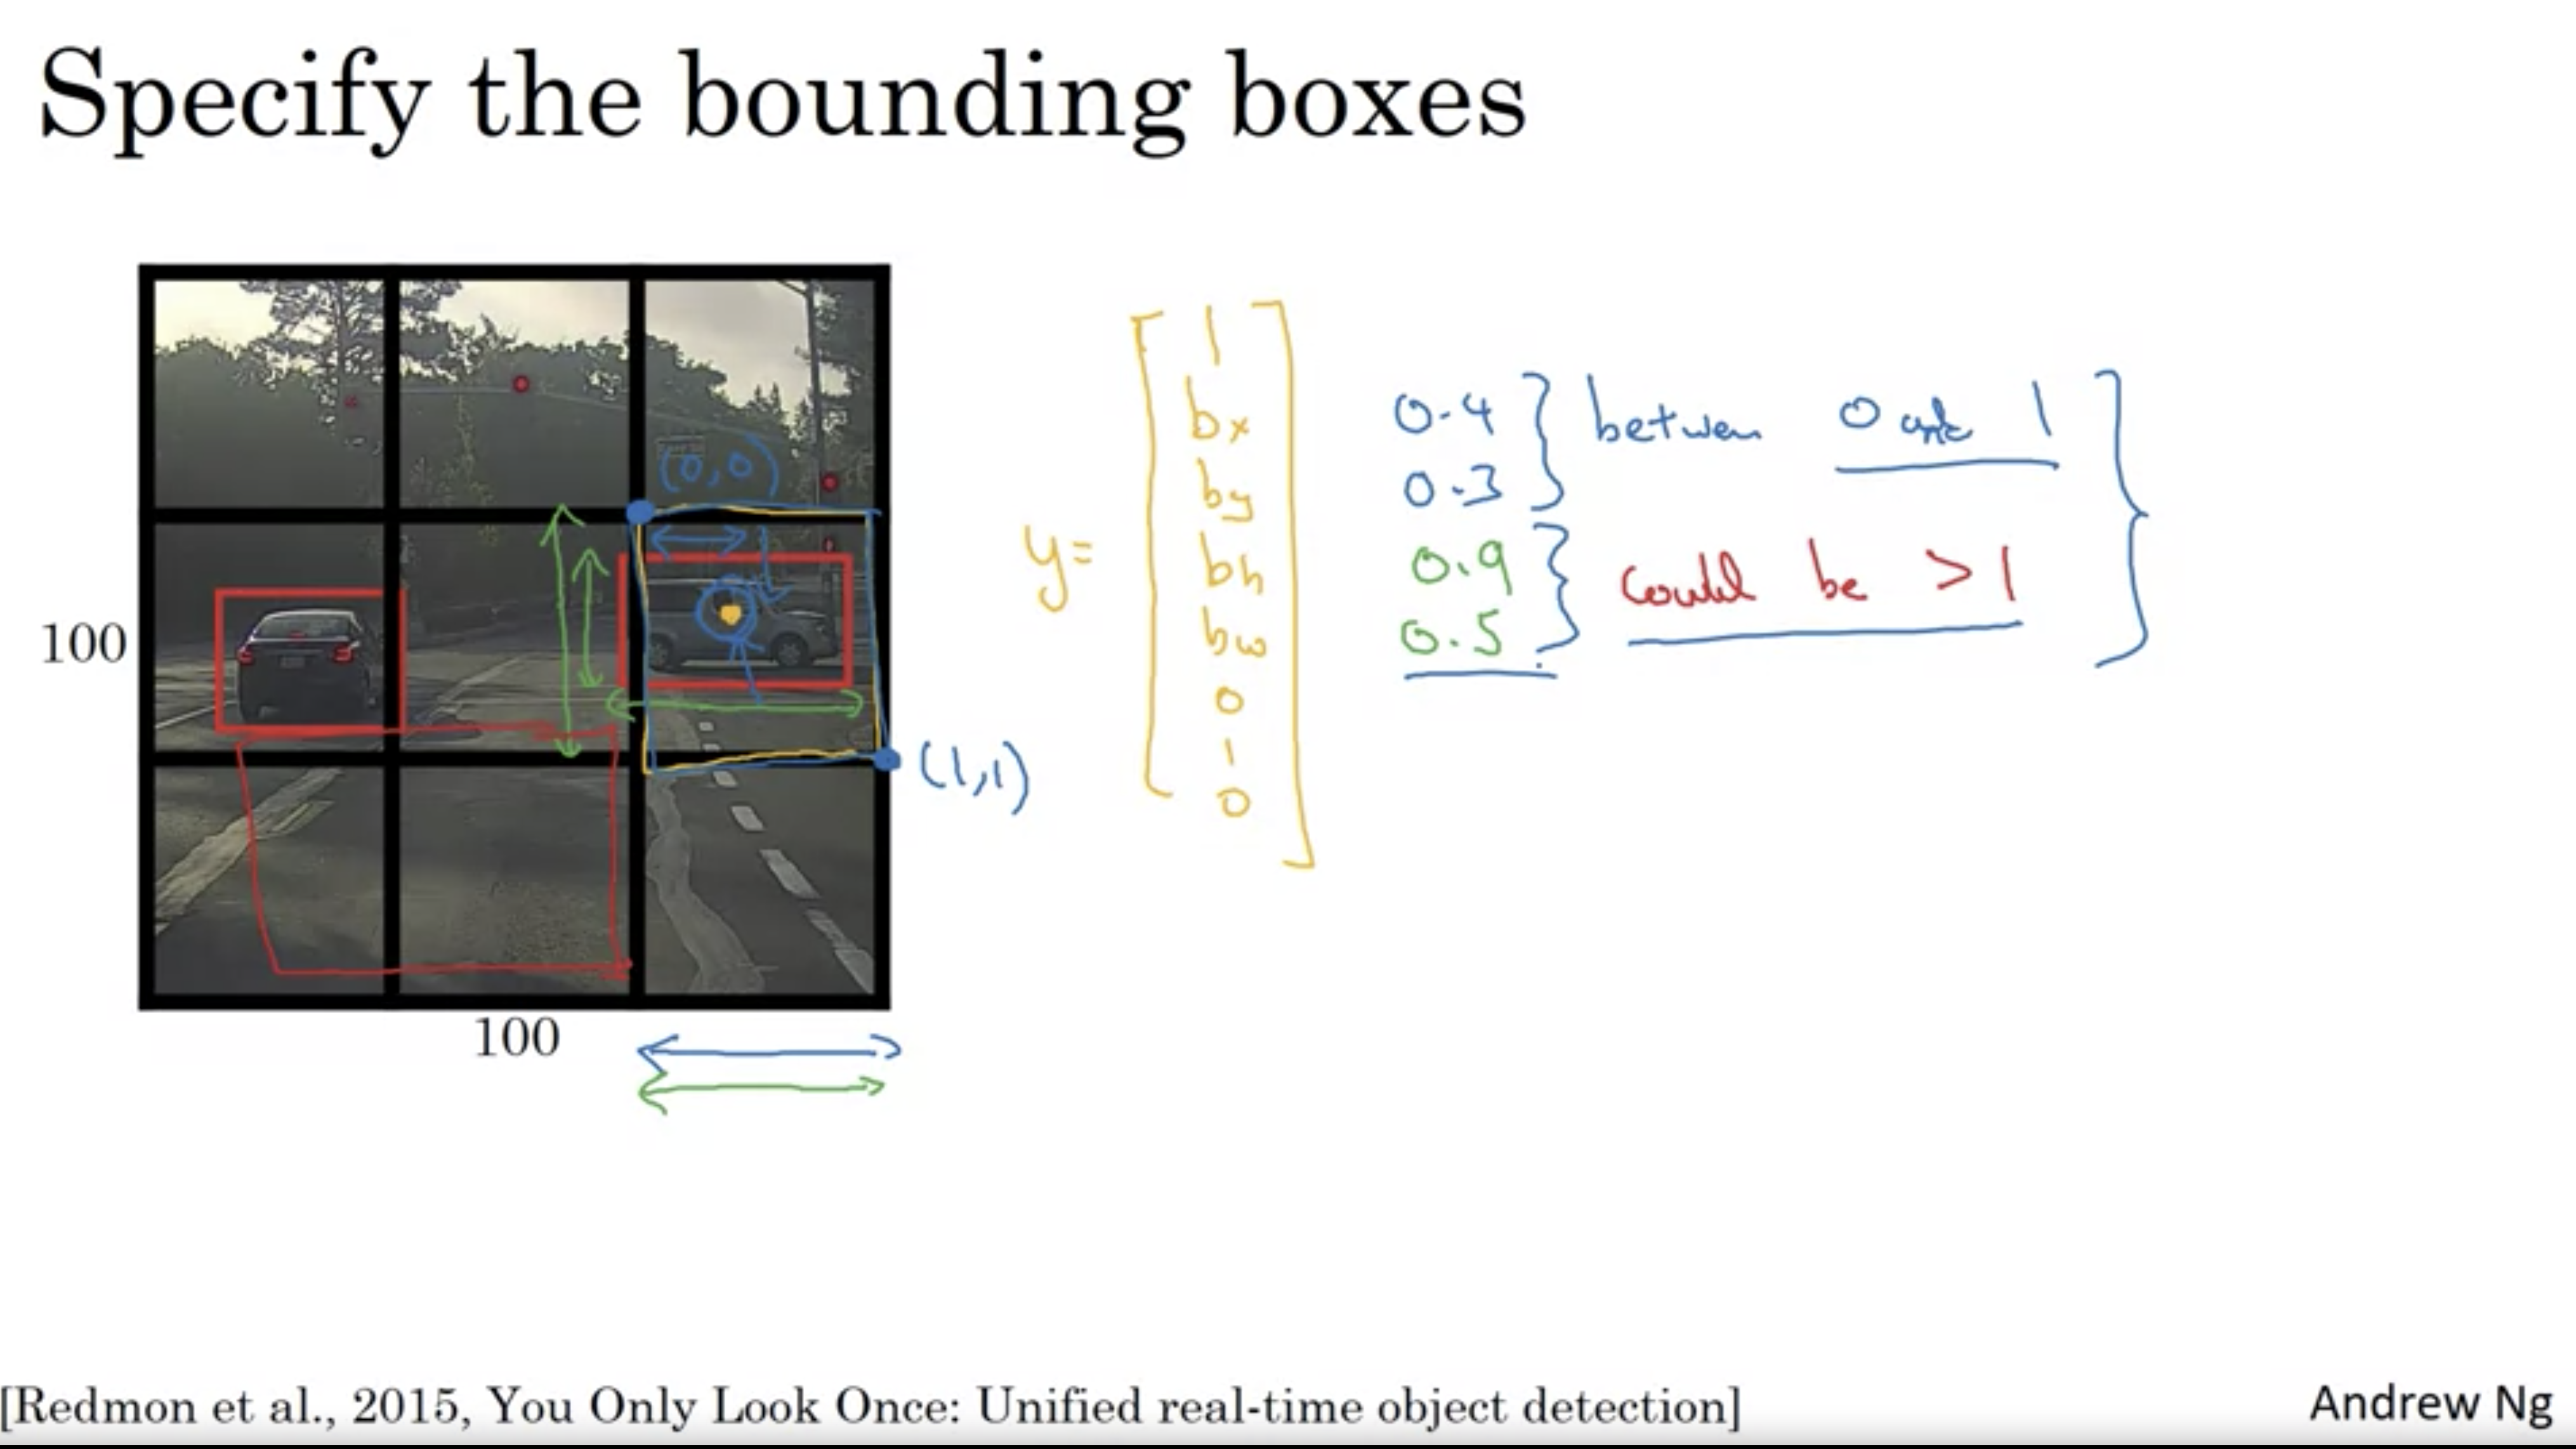 Specify the bounding boxes
(0,0)
100
(1,1)
100
y=
1
bx 0.4 between 0 and 1
by 0.3
bh 0.9 could be > 1
bw 0.5
0
1
0
[Redmon et al., 2015, You Only Look Once: Unified real-time object detection]
Andrew Ng